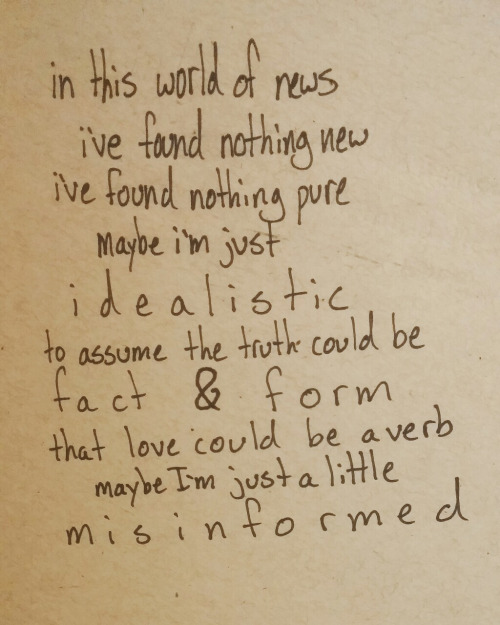 in this world of news
i've found nothing new
i've found nothing pure
maybe i'm just
idealistic
to assume the truth could be
fact & form
that love could be a verb
maybe I'm just a little
misinformed